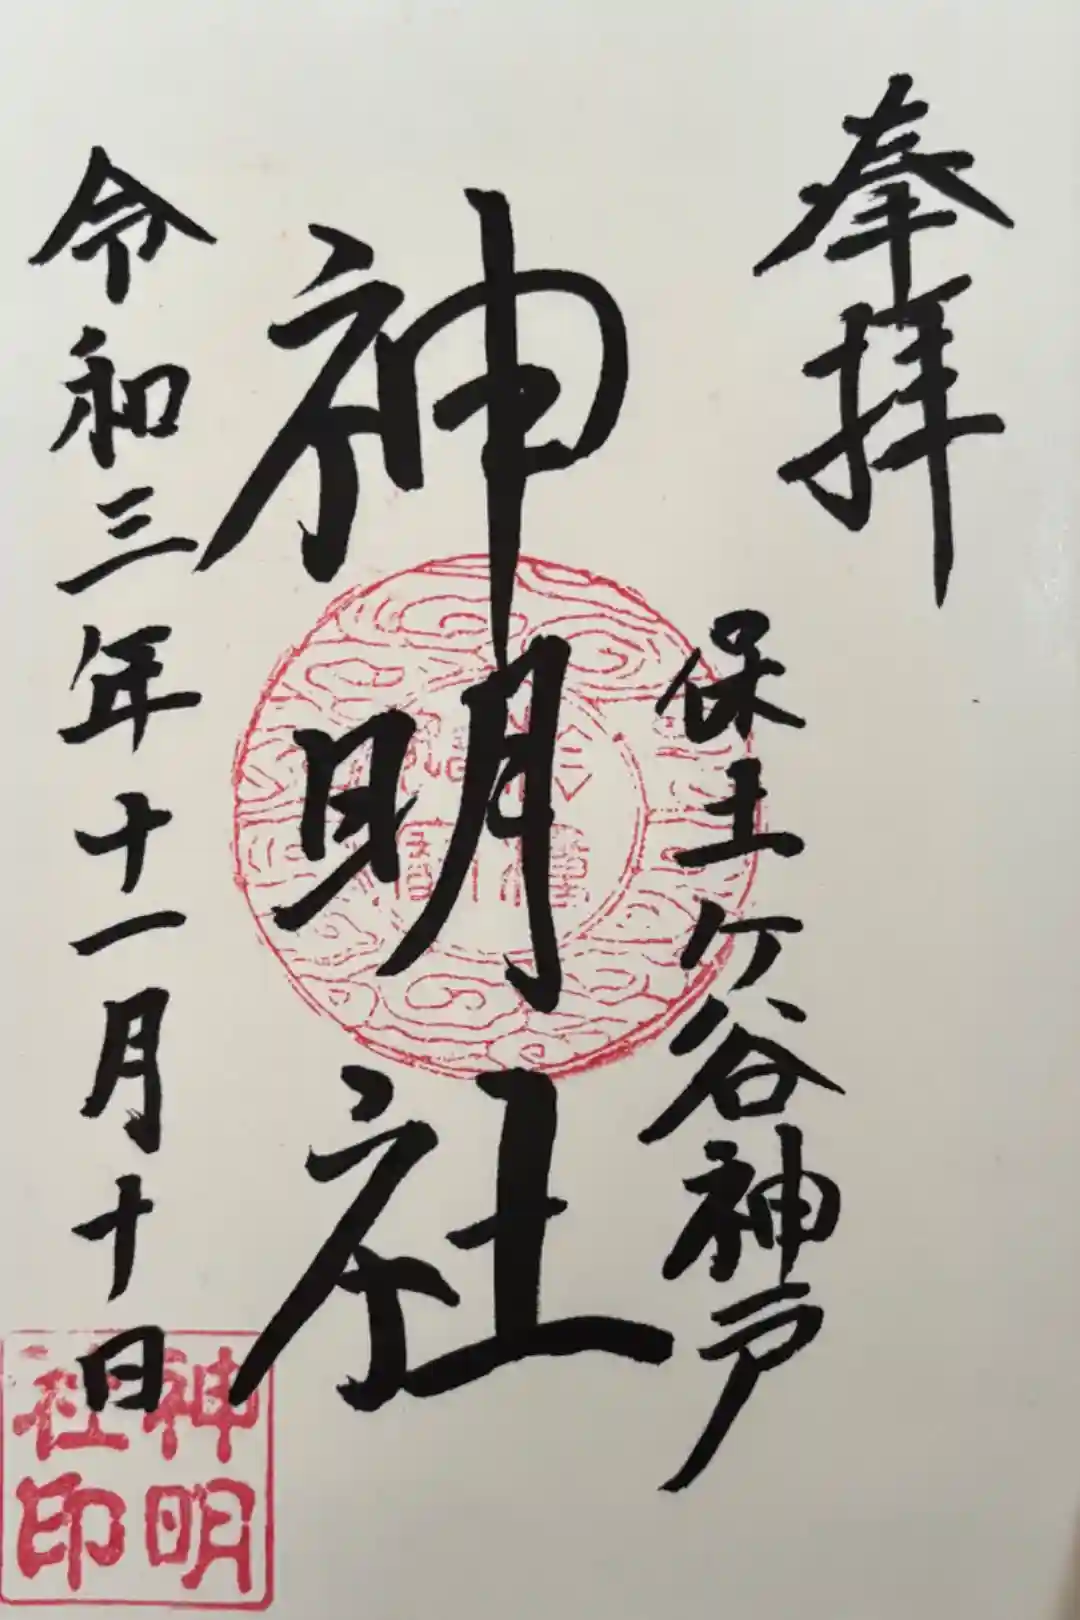 奉拝
保土ヶ谷神戸
神明社
令和三年十一月十日
神明
社印